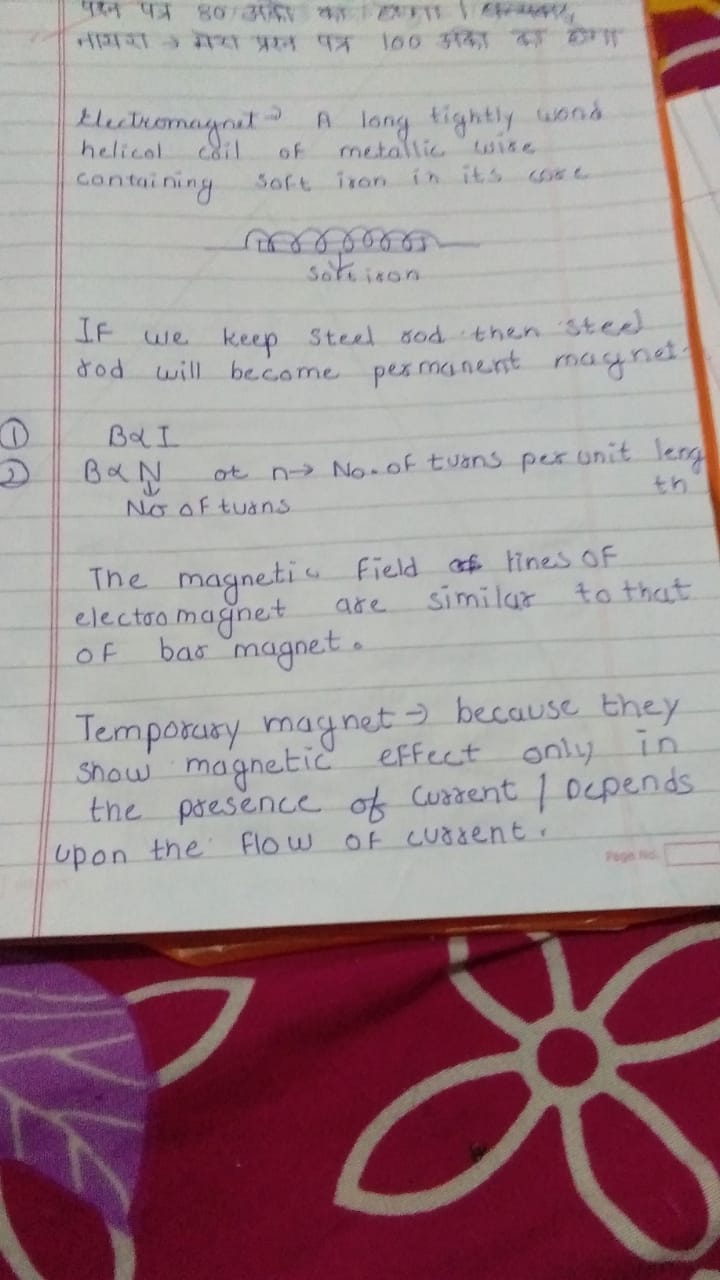 प्रश्न पत्र 80 अंको का होगा।
नायरा → मेरा प्रश्न पत्र 100 अंको का होगा
Electromagnet → A long tightly wond
helical coil of metallic wire
containing soft iron in its core
Soft iron
If we keep steel rod then steel
rod will become permanent magnet.
① B∝I
② B∝N or n→ No. of turns per unit leng
th
No of turns
The magnetic field lines of
electromagnet are similar to that
of bar magnet.
Temporary magnet → because they
show magnetic effect only in
the presence of current / Depends
upon the flow of current.
Page No.